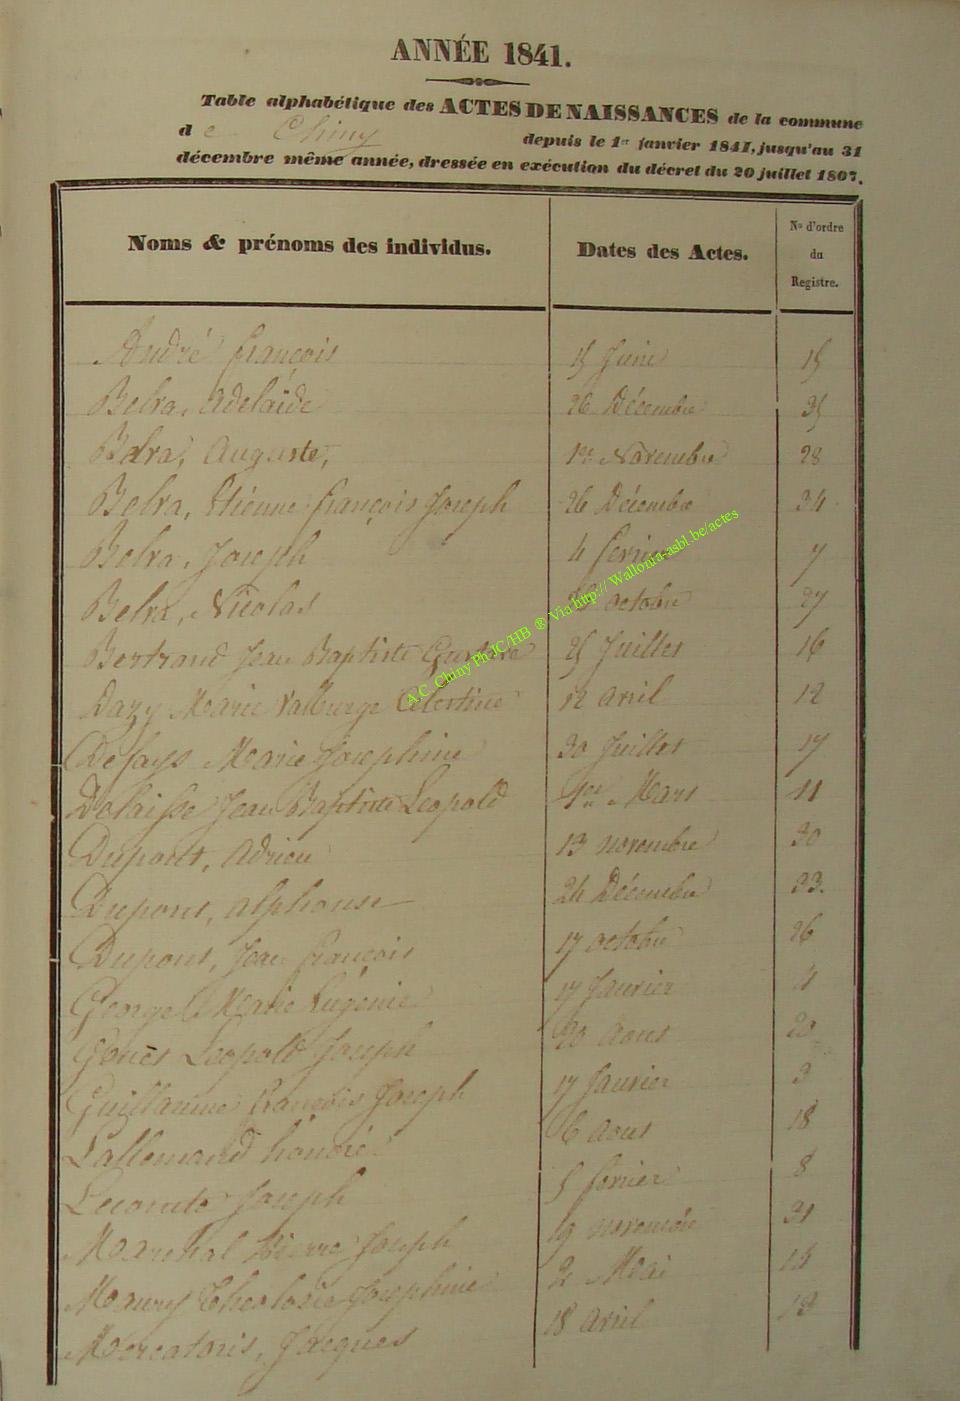 ANNÉE 1841.
Table alphabétique des ACTES DE NAISSANCES de la commune
de Chiny depuis le 1er janvier 1841, jusqu'au 31
décembre même année, dressée en exécution du décret du 20 juillet 1807.
Noms & prénoms des individus. Dates des Actes. No d'ordre du Registre.
André françois 15 Juin 15
Belva, Adelaïde 26 Décembre 35
Belva, Auguste, 1er Novembre 28
Belva, Etienne françois Joseph 26 Décembre 34
Belva, Joseph 4 fevrier 7
Belva, Nicolas octobre 27
Bertrand Jean Baptiste Gustave 25 Juillet 16
Dazy Marie Valburge Celestine 12 avril 12
Defays Marie Josephine 30 Juillet 17
Delaisse Jean Baptiste Leopold 1er Mars 11
Dupont, Adrien 13 novembre 30
Dupont, alphonse 24 Décembre 33.
Dupont, Jean françois 17 octobre 26
George Marie Eugénie 17 Janvier 4
Leopold Joseph 20 Aout 20
Guillaume françois Joseph 17 Janvier 3
Lallemand honoré 6 Aout 18
Lecomte Joseph 5 fevrier 8
Marchal Pierre Joseph 19 novembre 31
Maury Josephine 2 Mai
Mercatoris, Jacques 18 avril
A.C. Chiny Ph JC/HB ® Via http:// Wallonia-asbl.be/actes